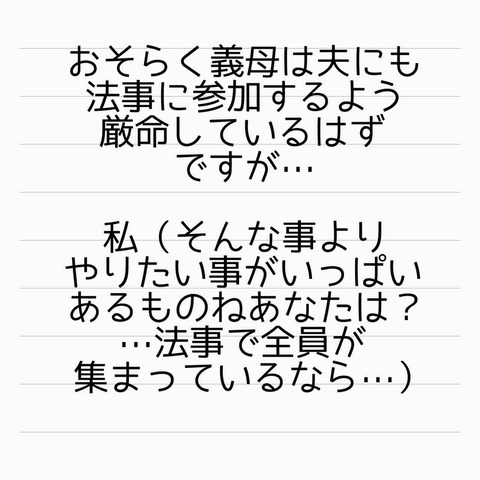 おそらく義母は夫にも
法事に参加するよう
厳命しているはず
ですが…
私（そんな事より
やりたい事がいっぱい
あるものねあなたは？
…法事で全員が
集まっているなら…）